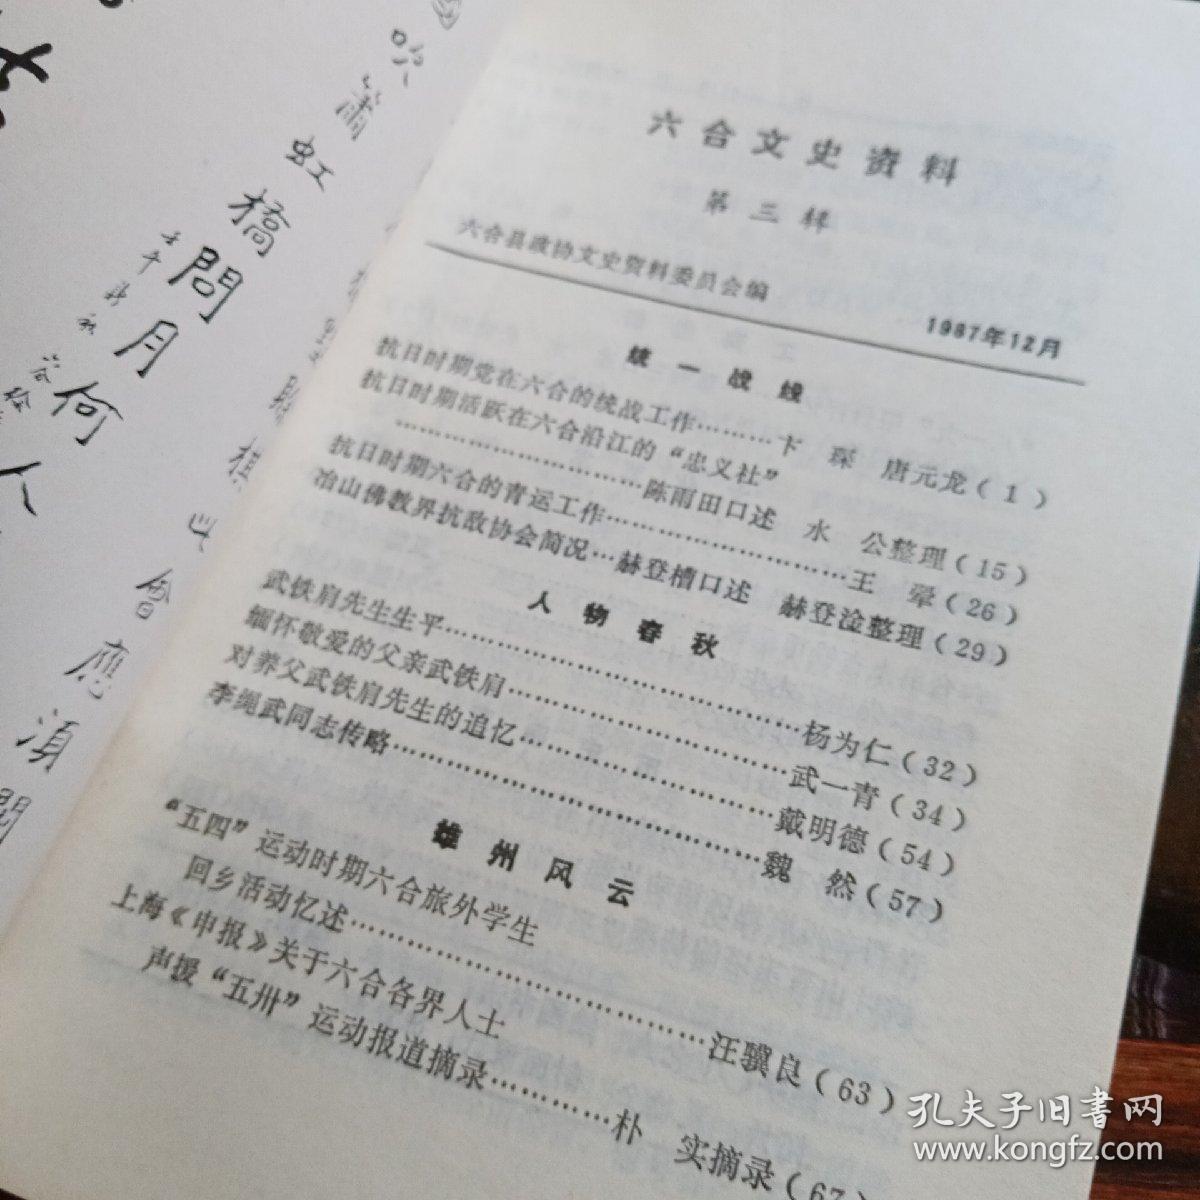 吹
簫
虹
橋
問
月
何
人
會
應
須
六合文史资料
第三辑
六合县政协文史资料委员会编
1987年12月
统一战线
抗日时期党在六合的统战工作………卞 琛 唐元龙(1)
抗日时期活跃在六合沿江的“忠义社”
……………………陈雨田口述 水 公整理(15)
抗日时期六合的青运工作……………………王 翚(26)
冶山佛教界抗敌协会简况…赫登槽口述 赫登淦整理(29)
人物春秋
武铁肩先生生平……………………………杨为仁(32)
缅怀敬爱的父亲武铁肩……………………武一青(34)
对养父武铁肩先生的追忆…………………戴明德(54)
李绳武同志传略……………………………魏 然(57)
雄州风云
“五四”运动时期六合旅外学生
回乡活动忆述……………………………汪骥良(63)
上海《申报》关于六合各界人士
声援“五卅”运动报道摘录…………朴 实摘录(67)
孔夫子旧书网
www.kongfz.com